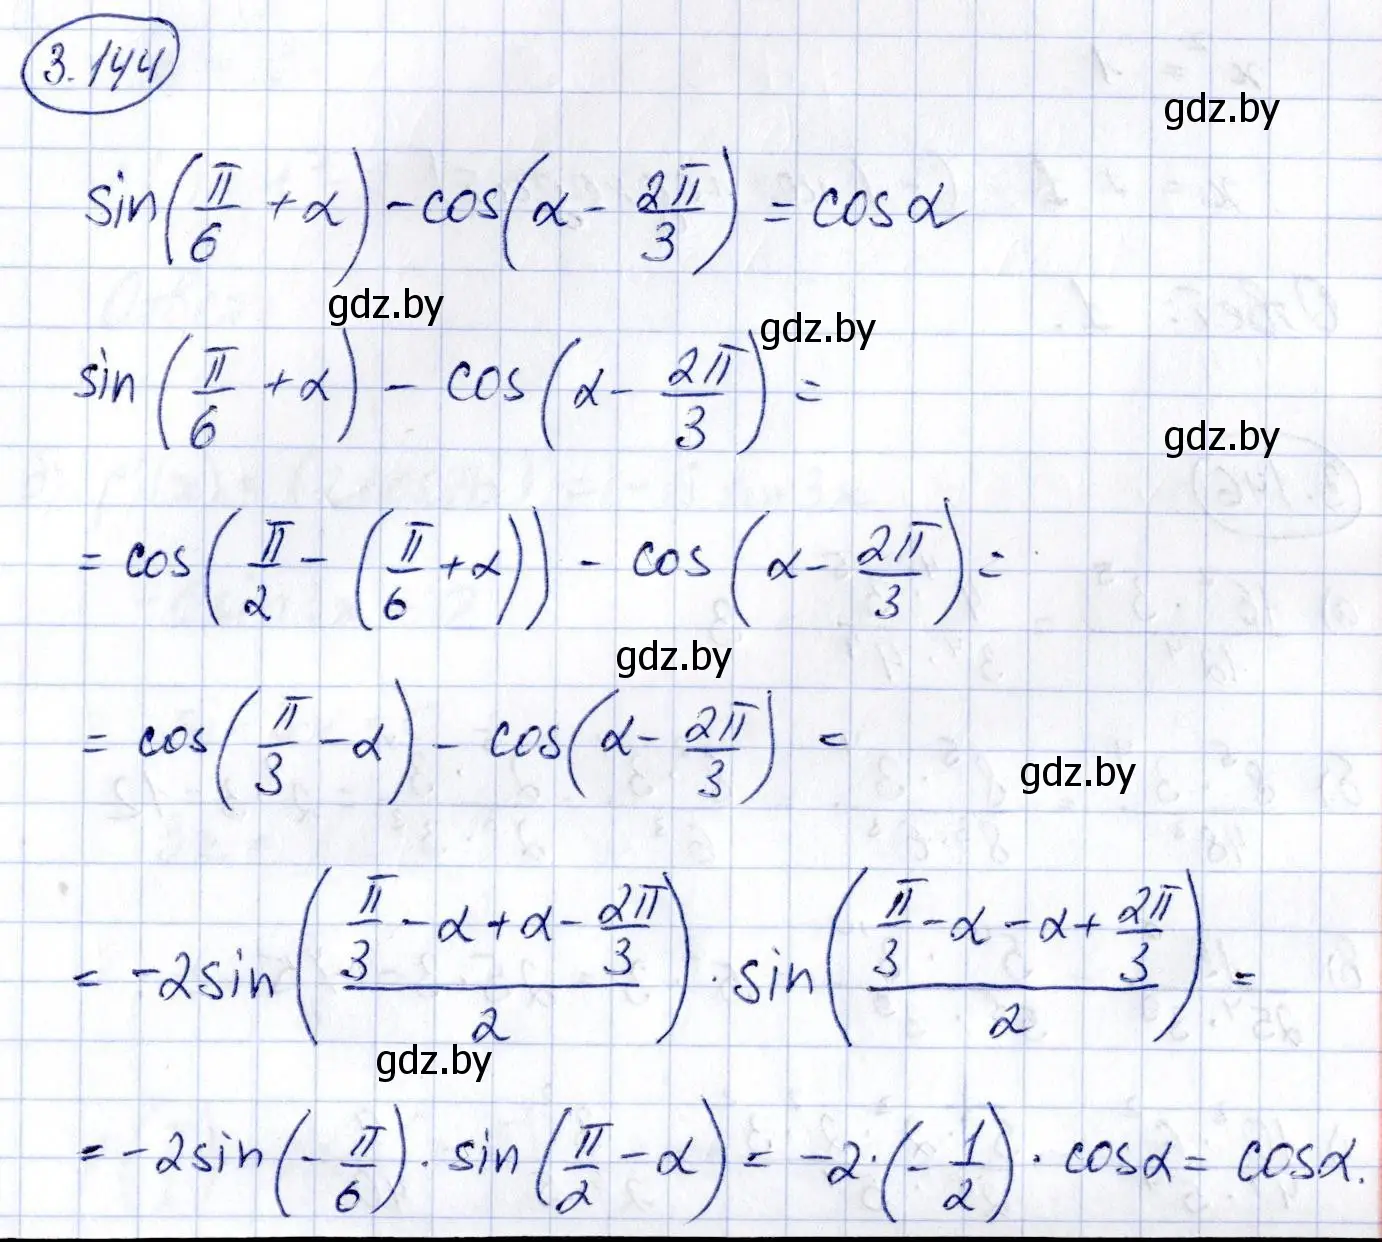 3.144
gdz.by
sin(π/6 + α) - cos(α - 2π/3) = cos α
gdz.by
gdz.by
sin(π/6 + α) - cos(α - 2π/3) =
gdz.by
= cos(π/2 - (π/6 + α)) - cos(α - 2π/3) =
gdz.by
= cos(π/3 - α) - cos(α - 2π/3) =
gdz.by
= -2sin((π/3 - α + α - 2π/3)/2) · sin((π/3 - α - α + 2π/3)/2) =
gdz.by
= -2sin(-π/6) · sin(π/2 - α) = -2·(-1/2) · cosα = cosα.